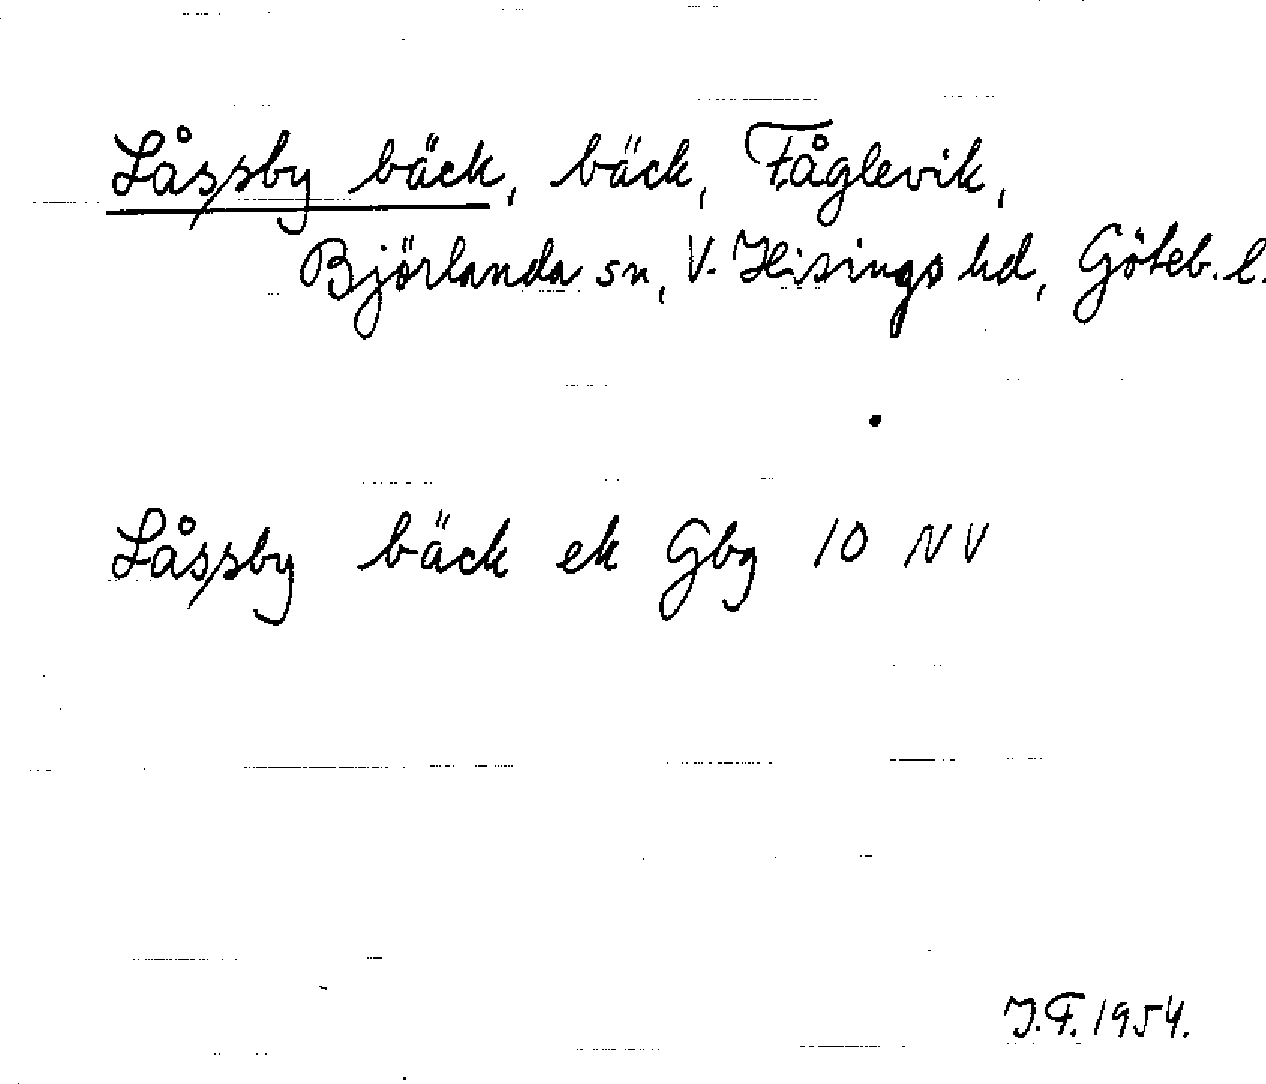 Låssby bäck, bäck, Fåglevik,
Björlanda sn, V. Hisings hd, Göteb. l.
Låssby bäck ek Gbg 10 NV
J.F. 1954.